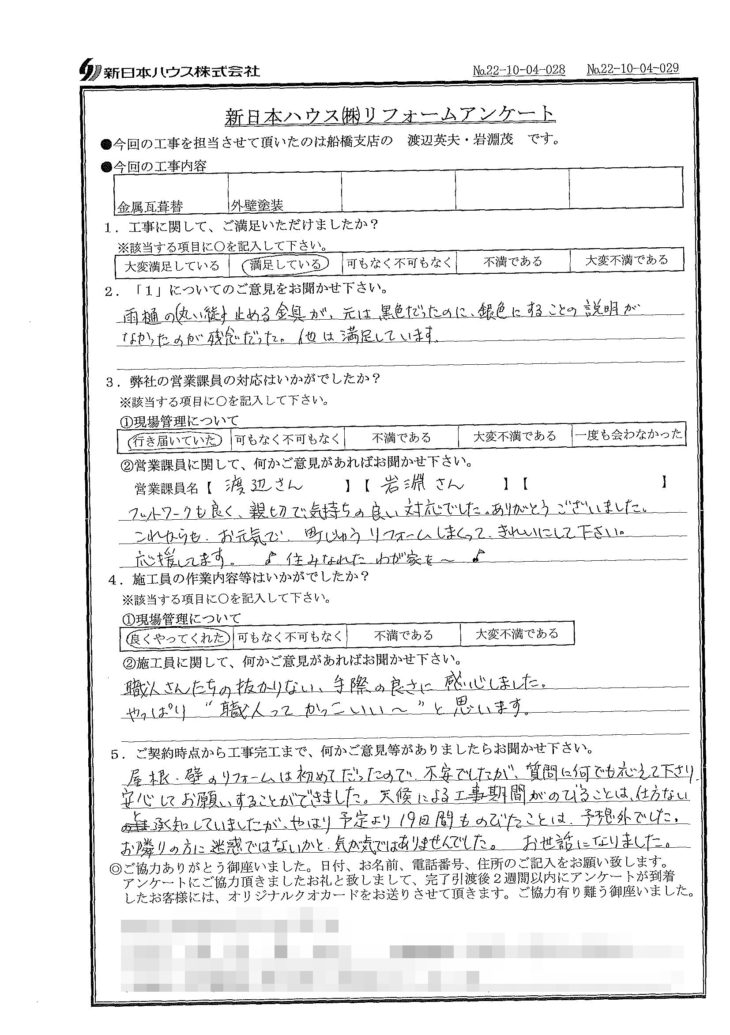 新日本ハウス株式会社 No.22-10-04-028 No.22-10-04-029
新日本ハウス㈱リフォームアンケート
●今回の工事を担当させて頂いたのは船橋支店の 渡辺英夫・岩淵茂 です。
●今回の工事内容
金属瓦葺替 外壁塗装
1．工事に関して、ご満足いただけましたか？
※該当する項目に○を記入して下さい。
大変満足している 満足している 可もなく不可もなく 不満である 大変不満である
2．「1」についてのご意見をお聞かせ下さい。
雨樋の(丸い縦)止める金具が、元は黒色だったのに、銀色にすることの説明が
なかったのが残念だった。他は満足しています。
3．弊社の営業課員の対応はいかがでしたか？
※該当する項目に○を記入して下さい。
①現場管理について
行き届いていた 可もなく不可もなく 不満である 大変不満である 一度も会わなかった
②営業課員に関して、何かご意見があればお聞かせ下さい。
営業課員名【 渡辺さん 】【 岩淵さん 】【 】
フットワークも良く、親切で気持ちの良い対応でした。ありがとうございました。
これからも、お元気で、町じゅうリフォームしまくって、きれいにして下さい。
応援してます。 ♪ 住みなれた わが家を〜 ♪
4．施工員の作業内容等はいかがでしたか？
※該当する項目に○を記入して下さい。
①現場管理について
良くやってくれた 可もなく不可もなく 不満である 大変不満である
②施工員に関して、何かご意見があればお聞かせ下さい。
職人さんたちの抜かりない、手際の良さに感心しました。
やっぱり“職人ってかっこいい〜”と思います。
5．ご契約時点から工事完工まで、何かご意見等がありましたらお聞かせ下さい。
屋根・壁のリフォームは初めてだったので、不安でしたが、質問に何でも応えて下さり、
安心してお願いすることができました。天候による工事期間がのびることは、仕方ない
と承知していましたが、やはり予定より19日間ものびたことは、予想外でした。
お隣りの方に迷惑ではないかと、気が気ではありませんでした。 お世話になりました。
◎ご協力ありがとう御座いました。日付、お名前、電話番号、住所のご記入をお願い致します。
アンケートにご協力頂きましたお礼と致しまして、完了引渡後2週間以内にアンケートが到着
したお客様には、オリジナルクオカードをお送りさせて頂きます。ご協力有り難う御座いました。